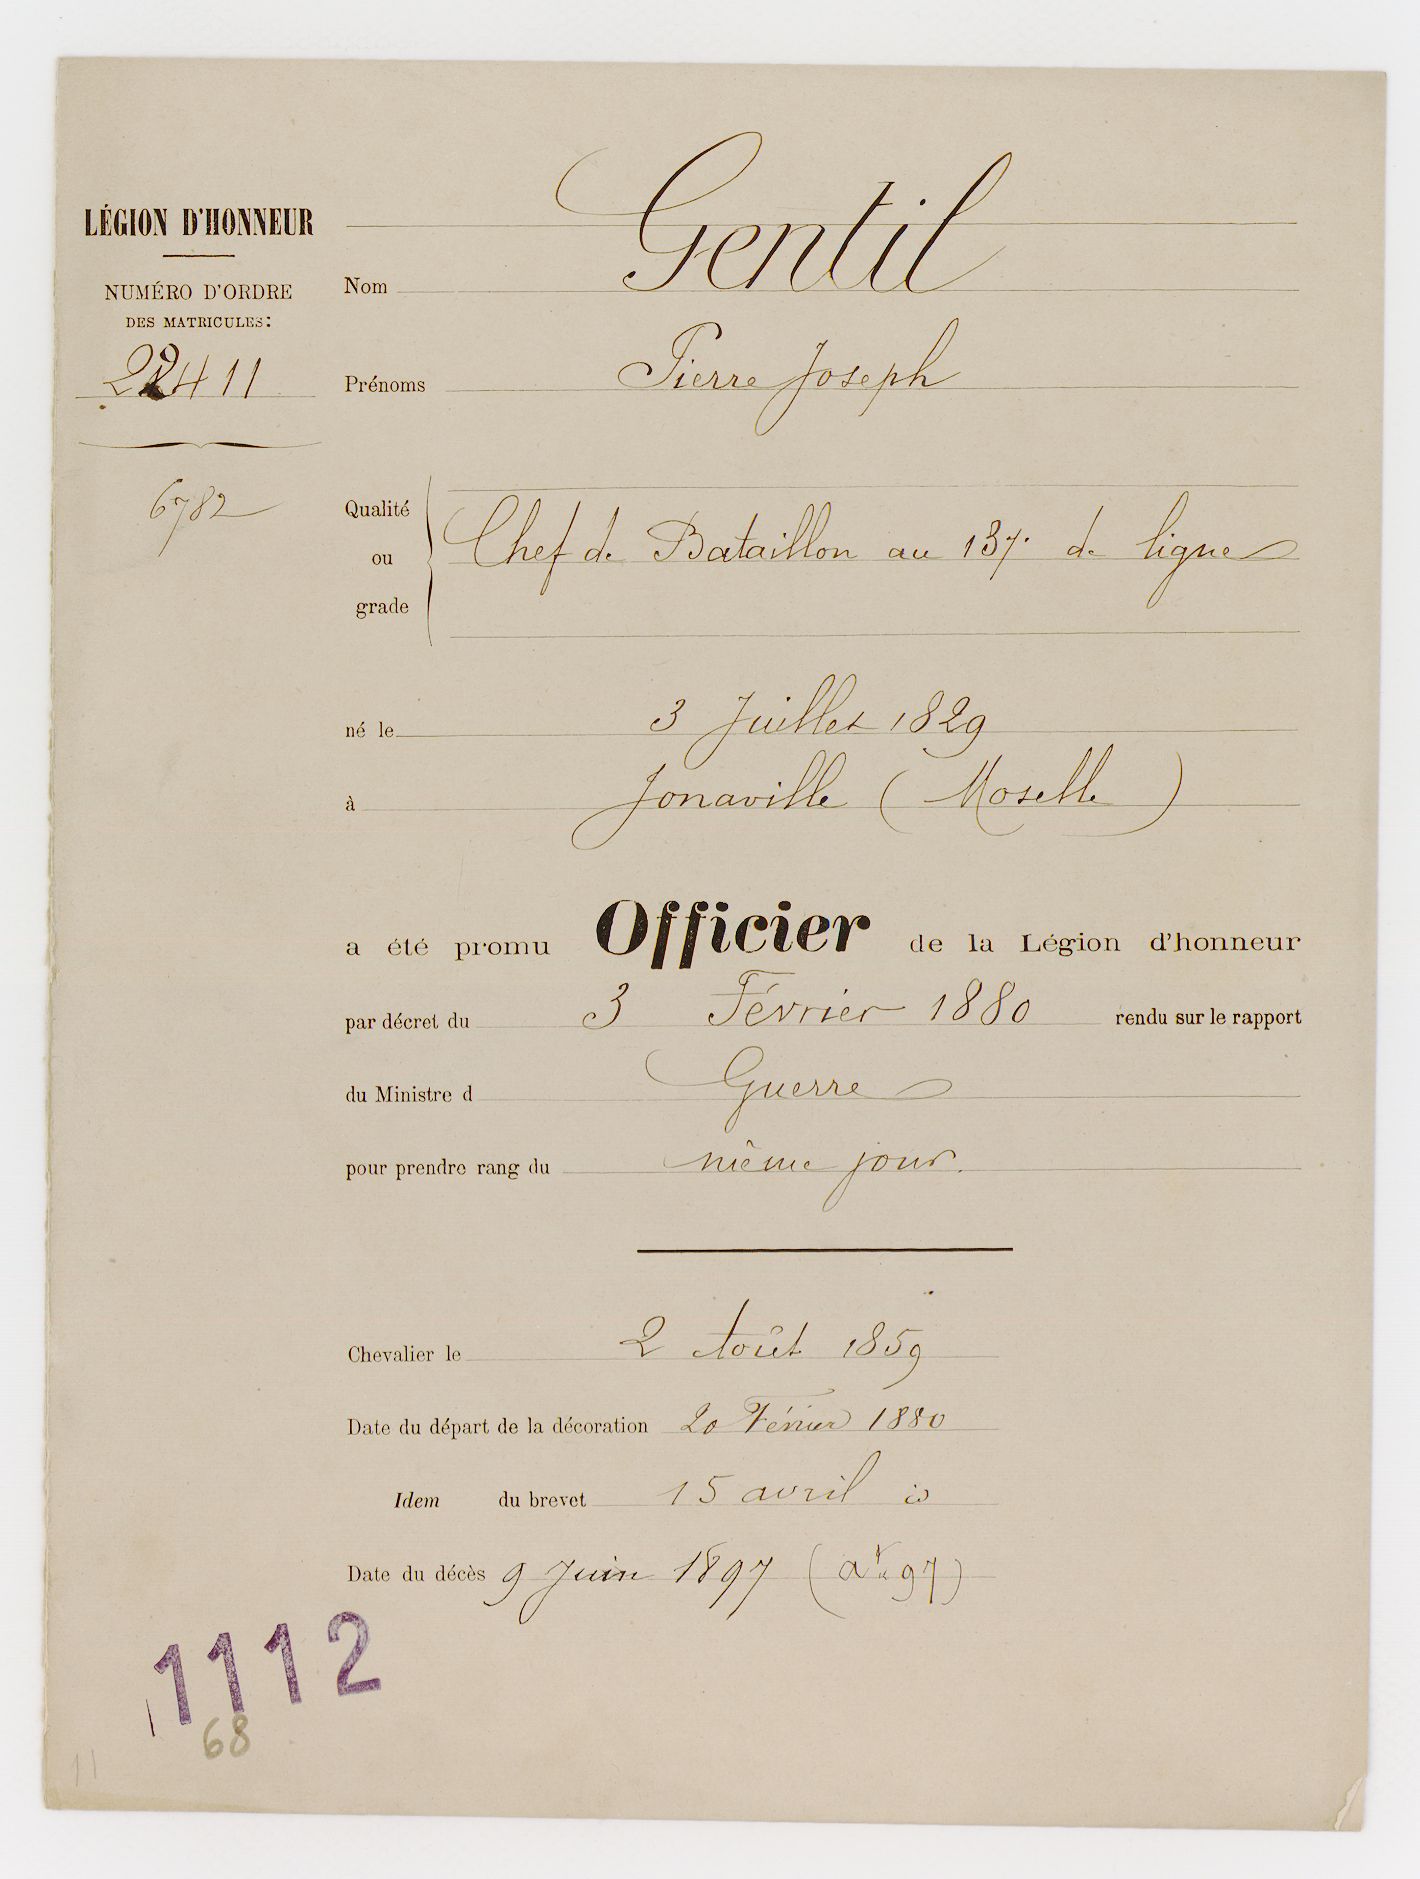 LÉGION D'HONNEUR
NUMÉRO D'ORDRE
DES MATRICULES:
22411
6782
Nom Gentil
Prénoms Pierre Joseph
Qualité
ou
grade
Chef de Bataillon au 137e de ligne
né le 3 Juillet 1829
à Jonaville (Moselle)
a été promu Officier de la Légion d'honneur
par décret du 3 Février 1880 rendu sur le rapport
du Ministre d Guerre
pour prendre rang du même jour.
Chevalier le 2 Août 1859
Date du départ de la décoration 20 Février 1880
Idem du brevet 15 avril
Date du décès 9 Juin 1897
1112
68
11